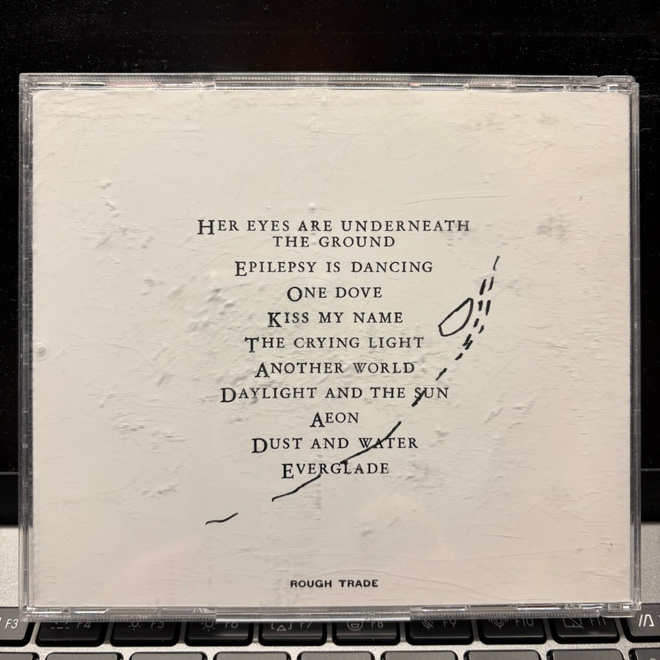 HER EYES ARE UNDERNEATH
THE GROUND
EPILEPSY IS DANCING
ONE DOVE
KISS MY NAME
THE CRYING LIGHT
ANOTHER WORLD
DAYLIGHT AND THE SUN
AEON
DUST AND WATER
EVERGLADE
ROUGH TRADE
F3